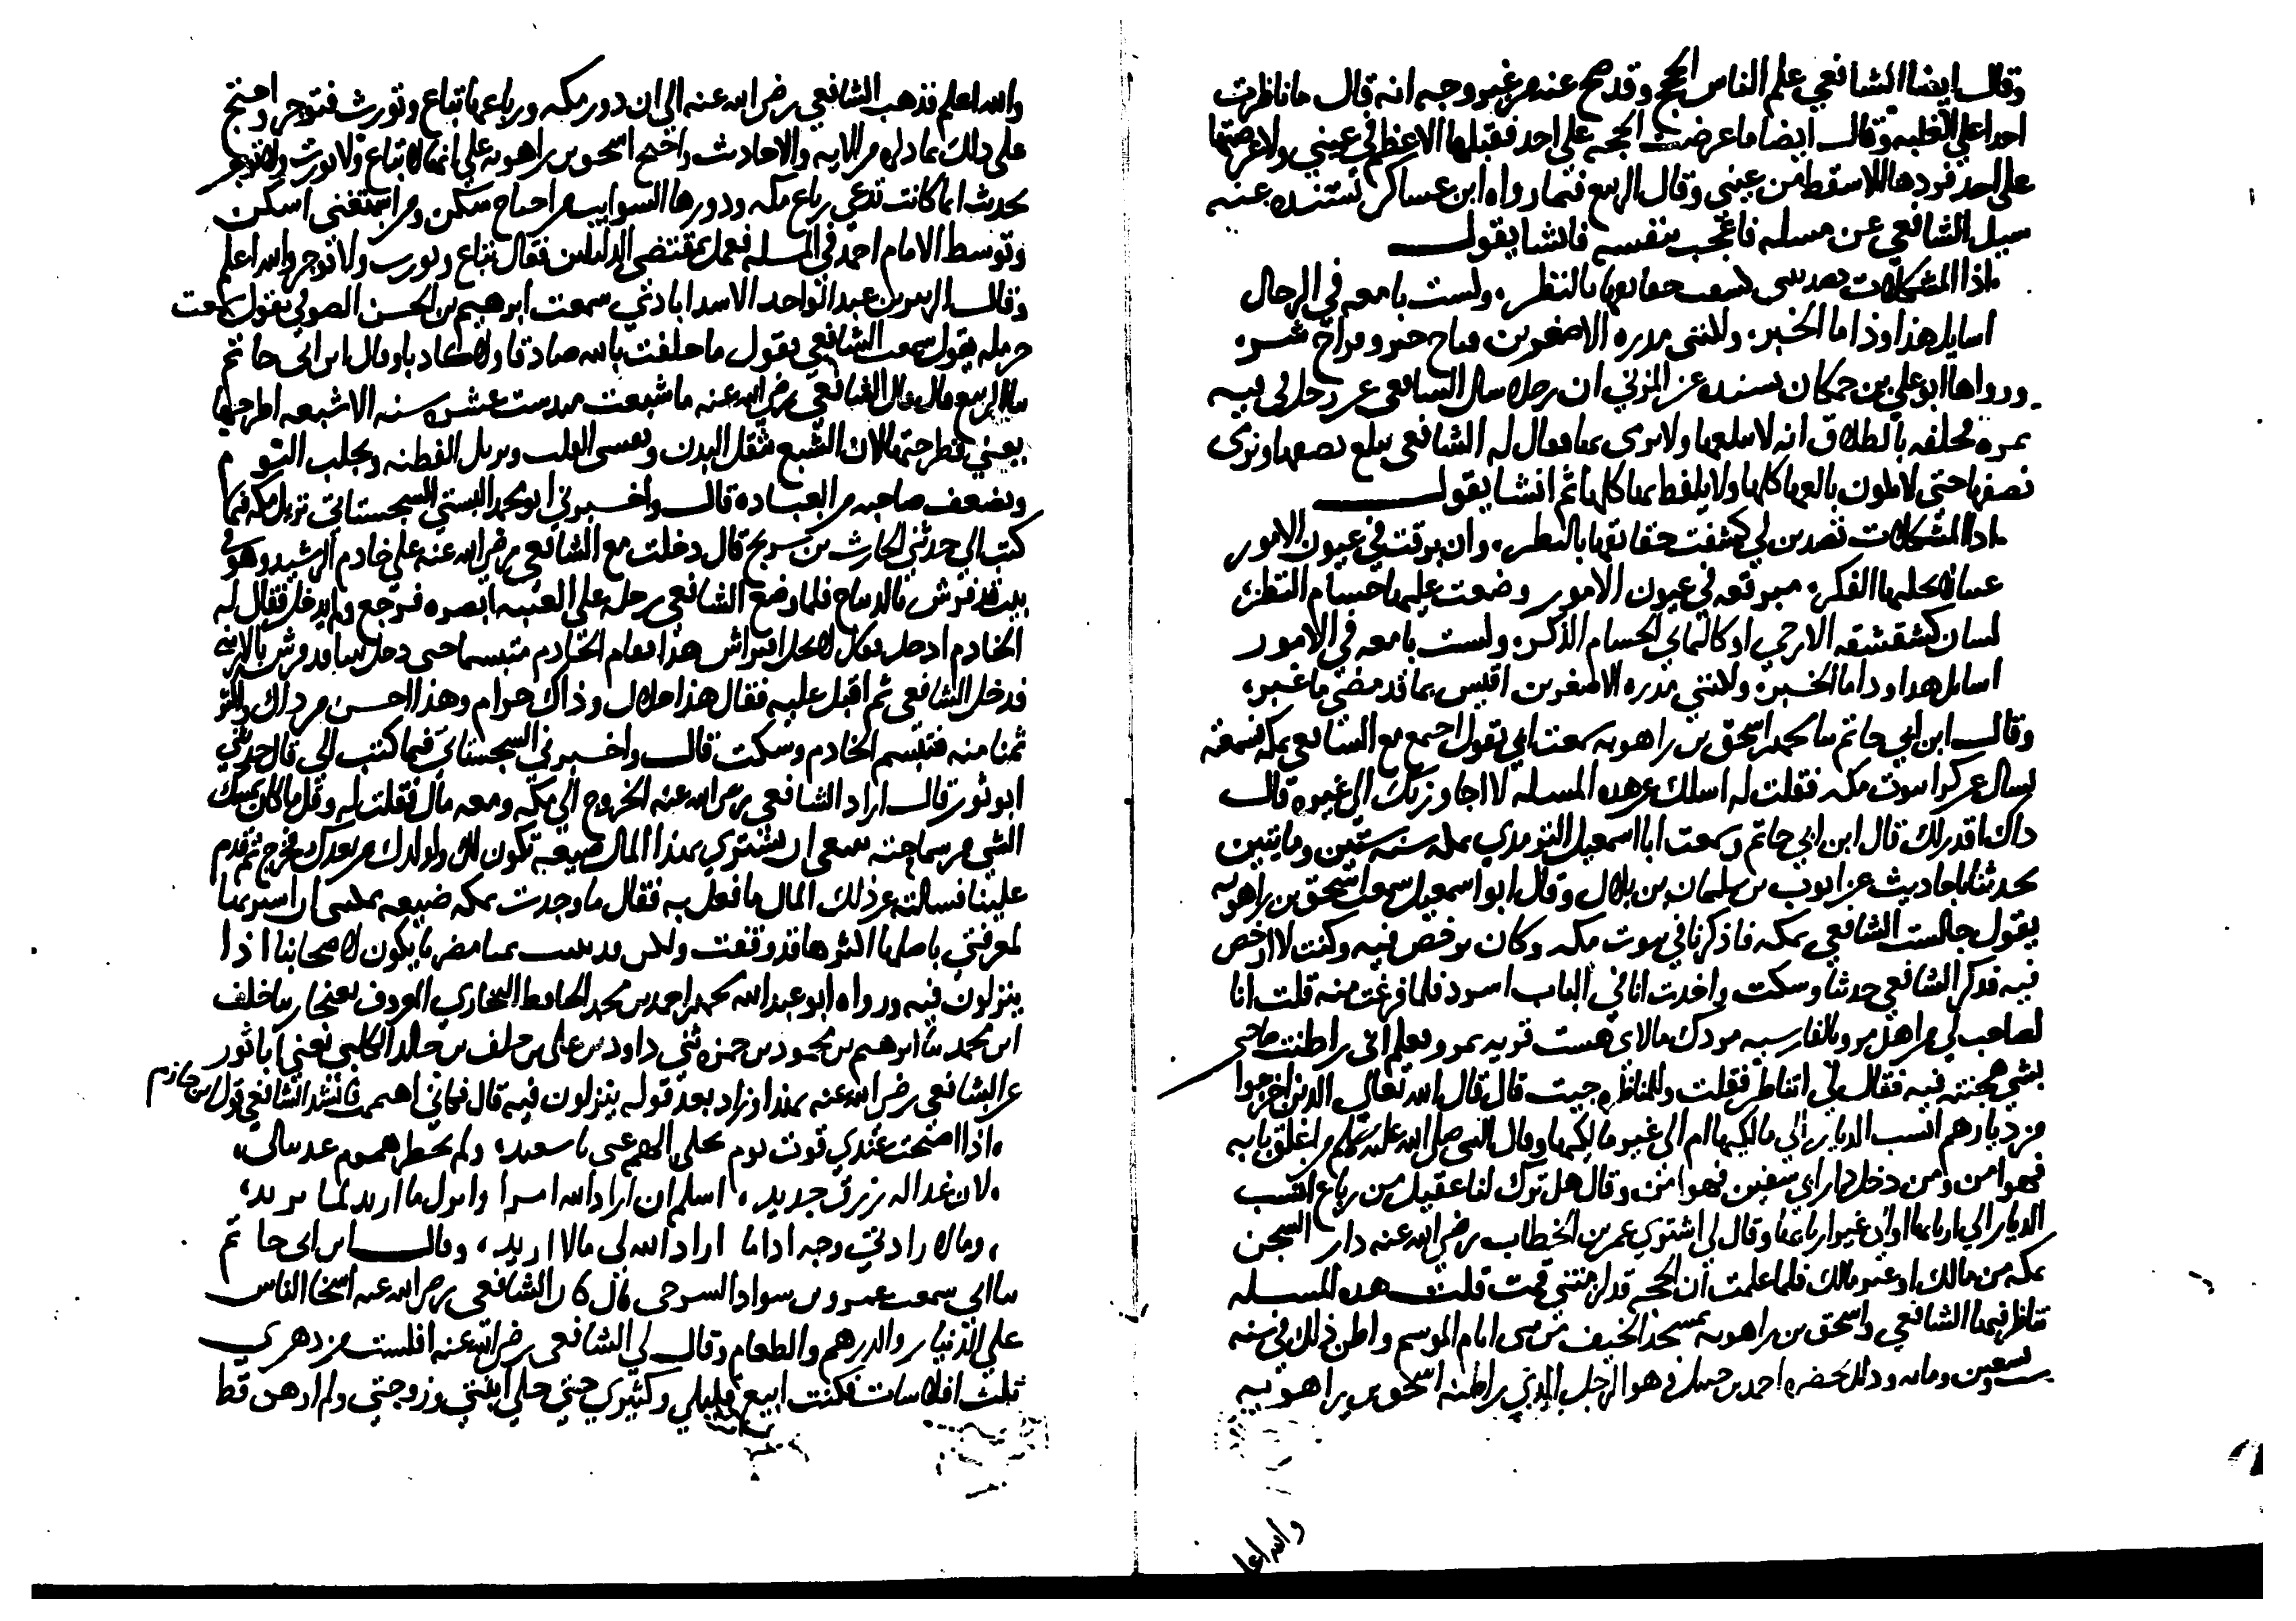 وقال ايضا الشافعي علم الناس الحجج وقد صح عنه من غير وجه انه قال ما ناظرت
احدا على الغلبه وقال ايضا ما عرضت الحجه على احد فقبلها الا عظم في عيني ولا عرضتها
على احد فردها الا سقط من عيني وقال الربيع فيما رواه ابن عساكر بسنده عنه
سيل الشافعي عن مسله فاعجب بنفسه فانشا يقول
اذا المشكلات تصدين لي كشفت حقايقها بالنظر ولست بامعه في الرجال
اسايل هذا وذا ما الخبر ولكنني مدره الاصغرين فتاح خير وفراج شر
ورواها ابو علي بن حمكان بسنده عن المزني ان رجلا سال الشافعي عن رجل في فيه
تمره فحلف بالطلاق انه لا يبلعها ولا يرمي بها فقال له الشافعي يبلع نصفها ويرمي
نصفها حتى لا يكون بالعها كلها ولا يلفظ بها كلها ثم انشا يقول
اذا المشكلات تصدين لي كشفت حقائقها بالنظر وان برقت في عيون الامور
عميا لا تجليها الفكر مبرقعه في عيون الامور وضعت عليها حسام النظر
لسان كشقشقه الارحبي او كاليماني الحسام الذكر ولست بامعه في الامور
اسايل هذا وذا ما الخبر ولكنني مدره الاصغرين اقيس بما قد مضى ما غبر
وقال ابن ابي حاتم سا محمد بن اسحق بن راهويه سمعت ابي يقول اجتمع مع الشافعي بمكه فسمعته
يسال عن كرا بيوت مكه فقلت له اسلك عن هذه المسله لا اجاوز بك الى غيره قال
ذاك اقدر لك قال ابن ابي حاتم وسمعت ابا اسمعيل الترمذي بمكه سنه ستين ومايتين
يحدثنا باحاديث عن ايوب بن سليمان بن بلال وقال ابو اسمعيل سمعت اسحق بن راهويه
يقول جالست الشافعي بمكه فتذاكرنا في بيوت مكه وكان يرخص فيه وكنت لا ارخص
فيه فذكر الشافعي حديثا وسكت واخذت انا في الباب اسرد فلما فرغت منه قلت انا
لصاحب لي من اهل مرو بالفارسيه مردك مالاي هست قريه بمرو فعلم اني راطنت صاحبي
بشي هجنته فيه فقال لي اتناظر فقلت وللمناظره جيت قال قال الله تعالى الذين اخرجوا
من ديارهم انسب الديار الى مالكيها ام الى غير مالكيها وقال النبي صلى الله عليه وسلم من اغلق بابه
فهو امن ومن دخل دار ابي سفين فهو امن وقال هل ترك لنا عقيل من رباع انسب
الديار الى اربابها او الى غير اربابها وقال لي اشترى عمر بن الخطاب رضي الله عنه دار السجن
بمكه من مالك او غير مالك فلما علمت ان الحجه قد لزمتني قمت قلت هذه المسله
تناظر فيها الشافعي واسحق بن راهويه بمسجد الخيف من منى ايام الموسم واظن ذلك في سنه
وتسعين ومايه وذلك بحضره احمد بن حنبل وهو الرجل الذي راطنه اسحق بن راهويه
والله اعلم
والله اعلم فذهب الشافعي رضي الله عنه الى ان دور مكه ورباعها تباع وتورث وتوجر واحتج
على ذلك بما ذكره من الايه والاحاديث واحتج اسحق بن راهويه على انها لا تباع ولا تورث ولا توجر
بحديث انما كانت تدعى رباع مكه ودورها السوايب من احتاج سكن ومن استغنى اسكن
وتوسط الامام احمد في المسله فعمل بمقتضى الدليلين فقال تباع وتورث ولا توجر والله اعلم
وقال الزبير بن عبد الواحد الاسداباذي سمعت ابرهيم بن الحسن الصوفي يقول سمعت
حرمله يقول سمعت الشافعي يقول ما حلفت بالله صادقا ولا كاذبا وقال ابن ابي حاتم
سا الربيع قال قال الشافعي رضي الله عنه ما شبعت منذ ست عشره سنه الا شبعه اطرحتها
يعني فطرحتها لان الشبع يثقل البدن ويقسي القلب ويزيل الفطنه ويجلب النوم
ويضعف صاحبه عن العباده قال واخبرني ابو محمد البستي السجستاني نزيل مكه فيما
كتب الي حدثني الحارث بن سريج قال دخلت مع الشافعي رضي الله عنه على خادم الرشيد وهو في
بيت قد فرش بالديباج فلما وضع الشافعي رجله على العتبه ابصره فرجع ولم يدخل فقال له
الخادم ادخل فقال لا يحل افتراش هذا فقام الخادم متبسما حتى دخل بيتا قد فرش بالارمني
فدخل الشافعي ثم اقبل عليه فقال هذا حلال وذاك حرام وهذا احسن من ذاك واكثر
ثمنا منه فتبسم الخادم وسكت قال واخبرني السجستاني فيما كتب الي قال حدثني
ابو ثور قال اراد الشافعي رضي الله عنه الخروج الى مكه ومعه مال فقلت له وقل ما كان يمسك
الشي من سماحته ينبغي ان تشتري بهذا المال ضيعه تكون لك ولولدك من بعدك فخرج ثم قدم
علينا فسالته عن ذلك المال ما فعل به فقال ما وجدت بمكه ضيعه يمكنني ان اشتريها
لمعرفتي باصلها اكثرها قد وقفت ولكن قد بنيت بمنا مضربا يكون لاصحابنا اذا
ينزلون فيه ورواه ابو عبد الله محمد بن احمد بن محمد الحافظ البخاري المعروف بغنجار سا خلف
ابن محمد سا ابرهيم بن محمود بن حمزه ثني داود بن علي بن خلف بن خالد الكلبي يعني ابا ثور
عن الشافعي رضي الله عنه بهذا وزاد بعد قوله ينزلون فيه قال فكاني اهتممت فانشد الشافعي قول ابن حازم
اذا اصبحت عندي قوت يوم فخلي الهم عني يا سعيد ولم يخطر هموم غد ببالي
لان غدا له رزق جديد اسلم ان اراد الله امرا واترك ما اريد لما يريد
وما لارادتي وجه اذا ما اراد الله لي ما لا اريد وقال ابن ابي حاتم
سا ابي سمعت عمرو بن سواد السرحي قال كان الشافعي رضي الله عنه اسخا الناس
على الدنيار والدرهم والطعام وقال لي الشافعي رضي الله عنه افلست من دهري
ثلث افلاسات فكنت ابيع قليلي وكثيري حتى حلي ابنتي وزوجتي ولم ارهن قط